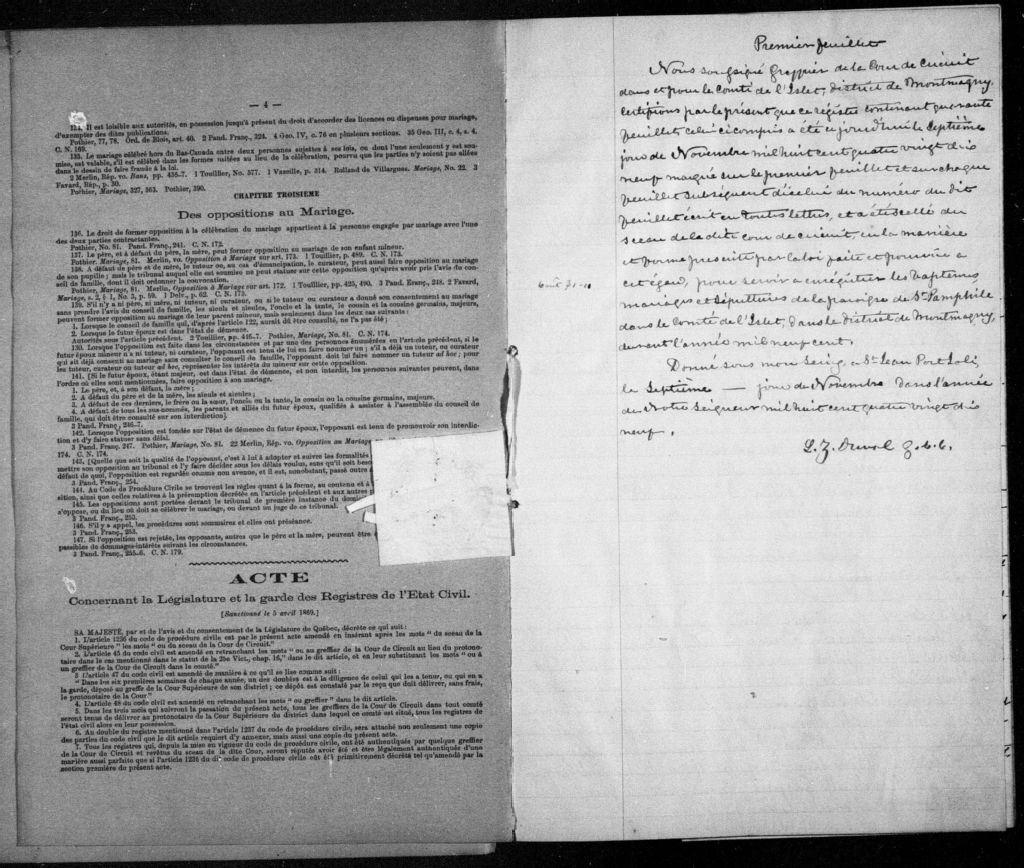 — 4 —
134. Il est loisible aux autorités, en possession jusqu'à présent du droit d'accorder des licences ou dispenses pour mariage,
d'exempter des dites publications.
Pothier, 77, 78. Ord. de Blois, art. 40. 2 Pand. Franç., 224. 4 Geo. IV, c. 76 en plusieurs sections. 35 Geo. III, c. 4, s. 4.
C. N. 169.
135. Le mariage célébré hors du Bas-Canada entre deux personnes sujettes à ses lois, ou dont l'une seulement y est sou-
mise, est valable, s'il est célébré dans les formes usitées au lieu de la célébration, pourvu que les parties n'y soient pas allées
dans le dessein de faire fraude à la loi.
2 Merlin, Rép. vo. Bans, pp. 455-7. 1 Touillier, No. 577. 1 Vazeille, p. 314. Rolland de Villargues, Mariage, No. 22. 3
Favard, Rép., p. 30.
Pothier, Mariage, 327, 363. Pothier, 390.
CHAPITRE TROISIÈME
Des oppositions au Mariage.
136. Le droit de former opposition à la célébration du mariage appartient à la personne engagée par mariage avec l'une
des deux parties contractantes.
Pothier, No. 81. Pand. Franç., 241. C. N. 172.
137. Le père, et à défaut du père, la mère, peut former opposition au mariage de son enfant mineur.
Pothier, Mariage, 81. Merlin, vo. Opposition à Mariage sur art. 173. 1 Touillier, p. 489. C. N. 173.
138. A défaut de père et de mère, le tuteur ou, au cas d'émancipation, le curateur, peut aussi faire opposition au mariage
de son pupille; mais le tribunal auquel elle est soumise ne peut statuer sur cette opposition qu'après avoir pris l'avis du con-
seil de famille, dont il doit ordonner la convocation.
Pothier, Mariage, 81. Merlin, vo. Opposition à Mariage sur art. 172. 1 Touillier, pp. 425, 490. 3 Pand. Franç., 248. 2 Favard,
Mariage, s. 2, § 1, No. 3, p. 59. 1 Delv., p. 62. C. N. 175.
139. S'il n'y a ni père, ni mère, ni tuteur, ni curateur, ou si le tuteur ou curateur a donné son consentement au mariage
sans prendre l'avis du conseil de famille, les aïeuls et aïeules, l'oncle et la tante, le cousin et la cousine germains, majeurs,
peuvent former opposition au mariage de leur parent mineur, mais seulement dans les deux cas suivants:
1. Lorsque le conseil de famille qui, d'après l'article 122, aurait dû être consulté, ne l'a pas été;
2. Lorsque le futur époux est dans l'état de démence.
Autorités sous l'article précédent. 2 Touillier, pp. 416-7. Pothier, Mariage, No. 81. C. N. 174.
Lorsque l'opposition est faite dans les circonstances et par une des personnes énumérées en l'article précédent, si le
futur époux mineur n'a ni tuteur, ni curateur, l'opposant est tenu de lui en faire nommer un; s'il a déjà un tuteur, ou curateur
qui ait déjà consenti au mariage sans consulter le conseil de famille, l'opposant doit lui faire nommer un tuteur ad hoc; pour
les tuteur, curateur ou tuteur ad hoc, représenter les intérêts du mineur sur cette opposition.
141. [Si le futur époux, étant majeur, est dans l'état de démence, et non interdit, les personnes suivantes peuvent, dans
l'ordre où elles sont mentionnées, faire opposition à son mariage.
1. Le père, et, à son défaut, la mère;
2. A défaut du père et de la mère, les aïeuls et aïeules;
3. A défaut de ces derniers, le frère ou la sœur, l'oncle ou la tante, le cousin ou la cousine germains, majeurs.
4. A défaut de tous les sus-nommés, les parents et alliés du futur époux, qualifiés à assister à l'assemblée du conseil de
famille, qui doit être consulté sur son interdiction]
3 Pand. Franç., 246-7.
142. Lorsque l'opposition est fondée sur l'état de démence du futur époux, l'opposant est tenu de promouvoir son interdic-
tion et d'y faire statuer sans délai.
3 Pand. Franç. 247. Pothier, Mariage, No. 81. 22 Merlin, Rép. vo. Opposition au Mariage
174. C. N. 174.
143. [Quelque soit la qualité de l'opposant, c'est à lui à adopter et suivre les formalités
mettre son opposition au tribunal et l'y faire décider sous les délais voulus, sans qu'il soit
défaut de quoi, l'opposition est regardée comme non avenue, et il est, nonobstant, passé outre
3 Pand. Franç., 254.
144. Au Code de Procédure Civile se trouvent les règles quant à la forme, au contenu et à
sition, ainsi que celles relatives à la péremption décrétée en l'article précédent et aux autres
145. Les oppositions sont portées devant le tribunal de première instance du
s'oppose, ou du lieu où doit se célébrer le mariage, ou devant un juge de ce tribunal.
3 Pand. Franç., 253.
146. S'il y a appel, les procédures sont sommaires et elles ont préséance.
3 Pand. Franç., 253.
147. Si l'opposition est rejetée, les opposants, autres que le père et la mère, peuvent être
passibles de dommages-intérêts suivant les circonstances.
3 Pand. Franç., 255-6. C. N. 179.
ACTE
Concernant la Législature et la garde des Registres de l'Etat Civil.
[Sanctionné le 5 avril 1869.]
SA MAJESTÉ, par et de l'avis et du consentement de la Législature de Québec, décrète ce qui suit:
1. L'article 1236 du code de procédure civile est par le présent acte amendé en insérant après les mots " du sceau de la
Cour Supérieure " les mots " ou du sceau de la Cour de Circuit."
2. L'article 45 du code civil est amendé en retranchant les mots " ou au greffier de la Cour de Circuit au lieu du protono-
taire dans le cas mentionné dans le statut de la 25e Vict., chap. 16," dans le dit article, et en leur substituant les mots " ou à
un greffier de la Cour de Circuit dans le comté."
3 L'article 47 du code civil est amendé de manière à ce qu'il se lise comme suit:
" Dans les six premières semaines de chaque année, un des doubles est à la diligence de celui qui les a tenus, ou qui en a
la garde, déposé au greffe de la Cour Supérieure de son district; ce dépôt est constaté par le reçu que doit délivrer, sans frais,
le protonotaire de la Cour."
4. L'article 48 du code civil est amendé en retranchant les mots " ou greffier " dans le dit article.
5. Dans les trois mois qui suivront la passation du présent acte, tous les greffiers de la Cour de Circuit dans tout comté
seront tenus de délivrer au protonotaire de la Cour Supérieure du district dans lequel ce comté est situé, tous les registres de
l'état civil alors en leur possession.
6. Au double du registre mentionné dans l'article 1237 du code de procédure civile, sera attaché non seulement une copie
des parties du code civil que le dit article requiert d'y annexer, mais aussi une copie du présent acte.
7. Tous les registres qui, depuis la mise en vigueur du code de procédure civile, ont été authentiqués par quelque greffier
de la Cour de Circuit et revêtus du sceau de la dite Cour, seront réputés avoir été et être légalement authentiqués d'une
manière aussi parfaite que si l'article 1236 du dit code de procédure civile eût été primitivement décrété tel qu'amendé par la
section première du présent acte.
Premier feuillet
Nous soussigné Greffier de la Cour de Circuit
dans et pour le Comté de l'Islet, district de Montmagny,
Certifions par le présent que ce régistre contenant quarante
feuillet celui ci compris a été ce jourd'hui le Septième
jour de Novembre mil huit cent quatre vingt dix
neuf marqué sur le premier feuillet et sur chaque
feuillet subséquent d'icelui du numéro du dit
feuillet écrit en toutes lettres, et a été scellé du
sceau de la dite cour de circuit, en la manière
et forme prescrite par la loi faite et pourvue à
cet égard, pour servir à enrégistrer les baptêmes
mariages et sépultures de la paroisse de St. Pamphile
dans le Comté de l'Islet, dans le district de Montmagny,
durant l'année mil neuf cent.
Donné sous mon seing, à St Jean Port Joli
le Septième — jour de Novembre Dans l'année
de Notre Seigneur mil huit cent quatre vingt dix
neuf.
L. Z. Duval G. C. C.